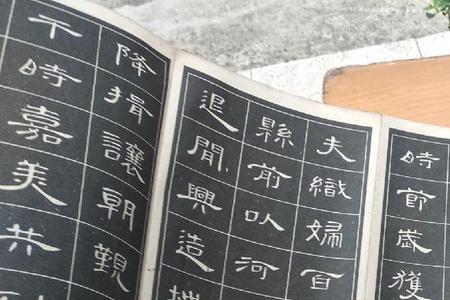 時節歲獲
夫織婦百
縣前以河
退閒興造
降揖讓朝覲
干時嘉美共